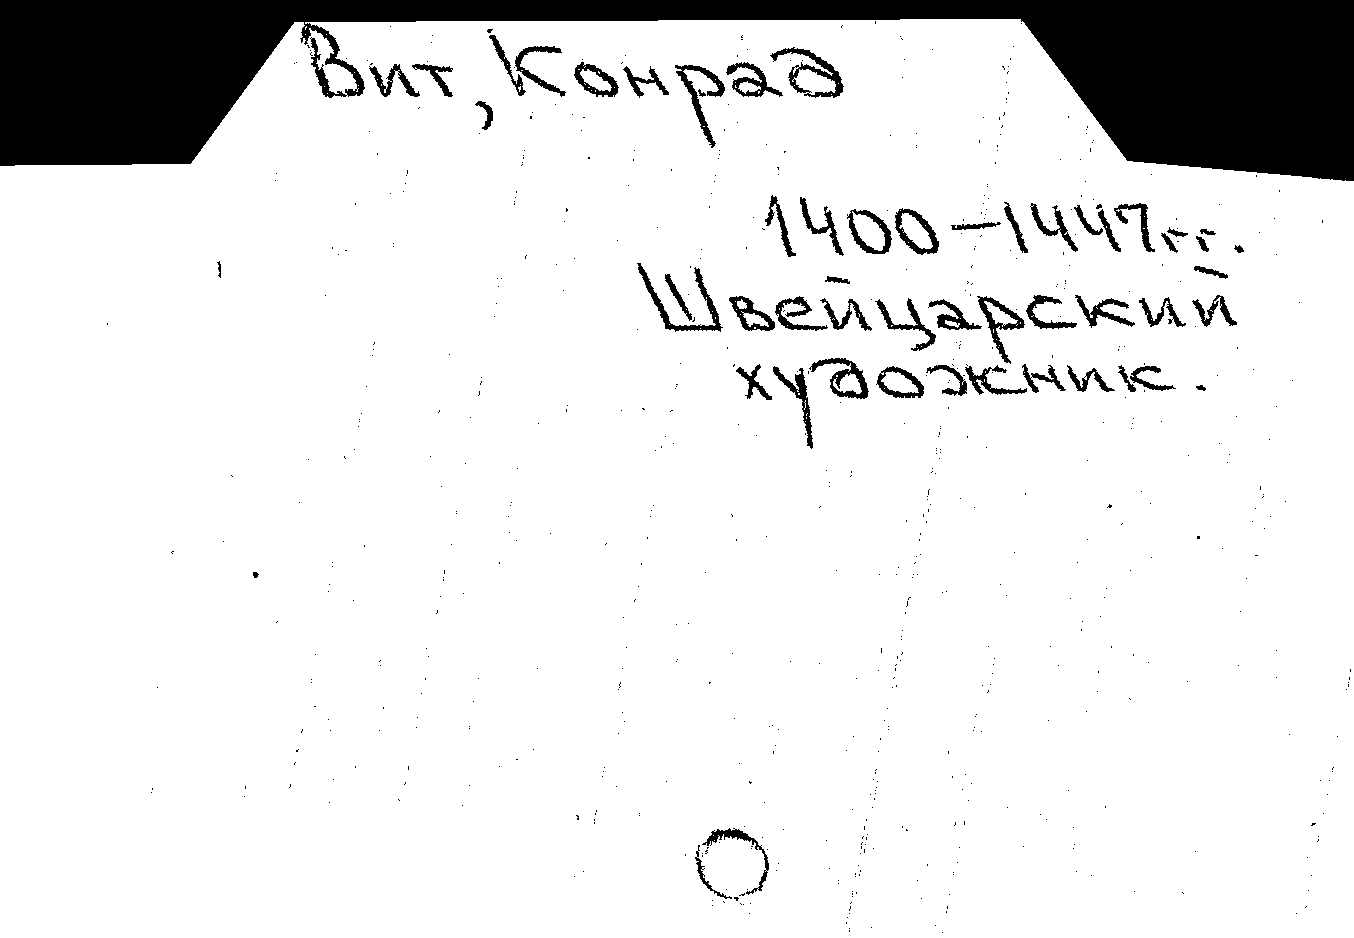 Вит, Конрад
1400–1447 гг.
Швейцарский
художник.